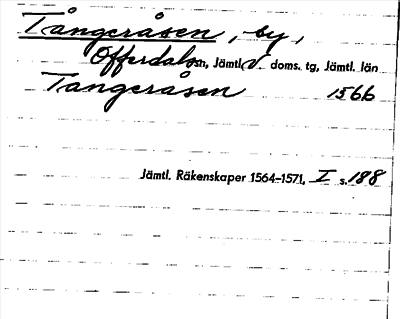 Tångeråsen, by,
Offerdals sn, Jämtl. v. doms. tg, Jämtl. län
Tangeråsen 1566
Jämtl. Räkenskaper 1564-1571, I s. 188